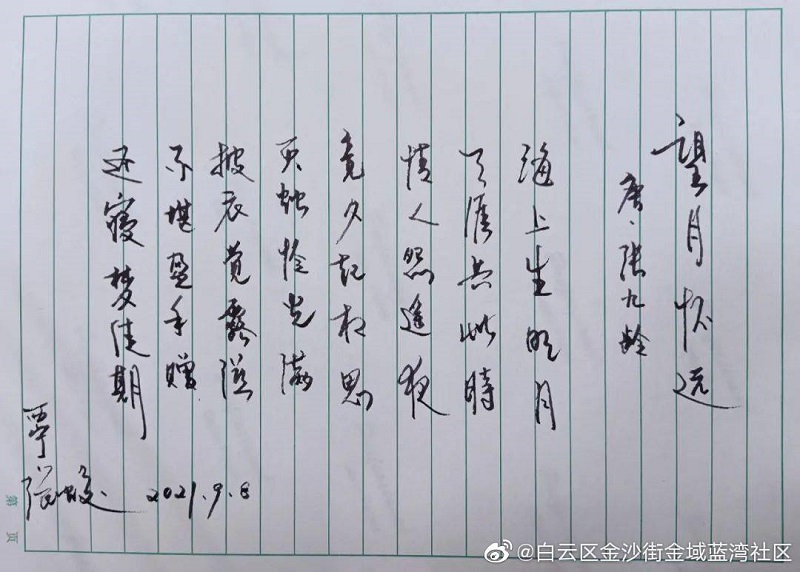 望月怀远
唐·張九龄
海上生明月
天涯共此時
情人怨遥夜
竟夕起相思
灭烛怜光满
披衣覺露滋
不堪盈手贈
还寝梦佳期
西宁
2021.9.8
第 页
@白云区金沙街金域蓝湾社区